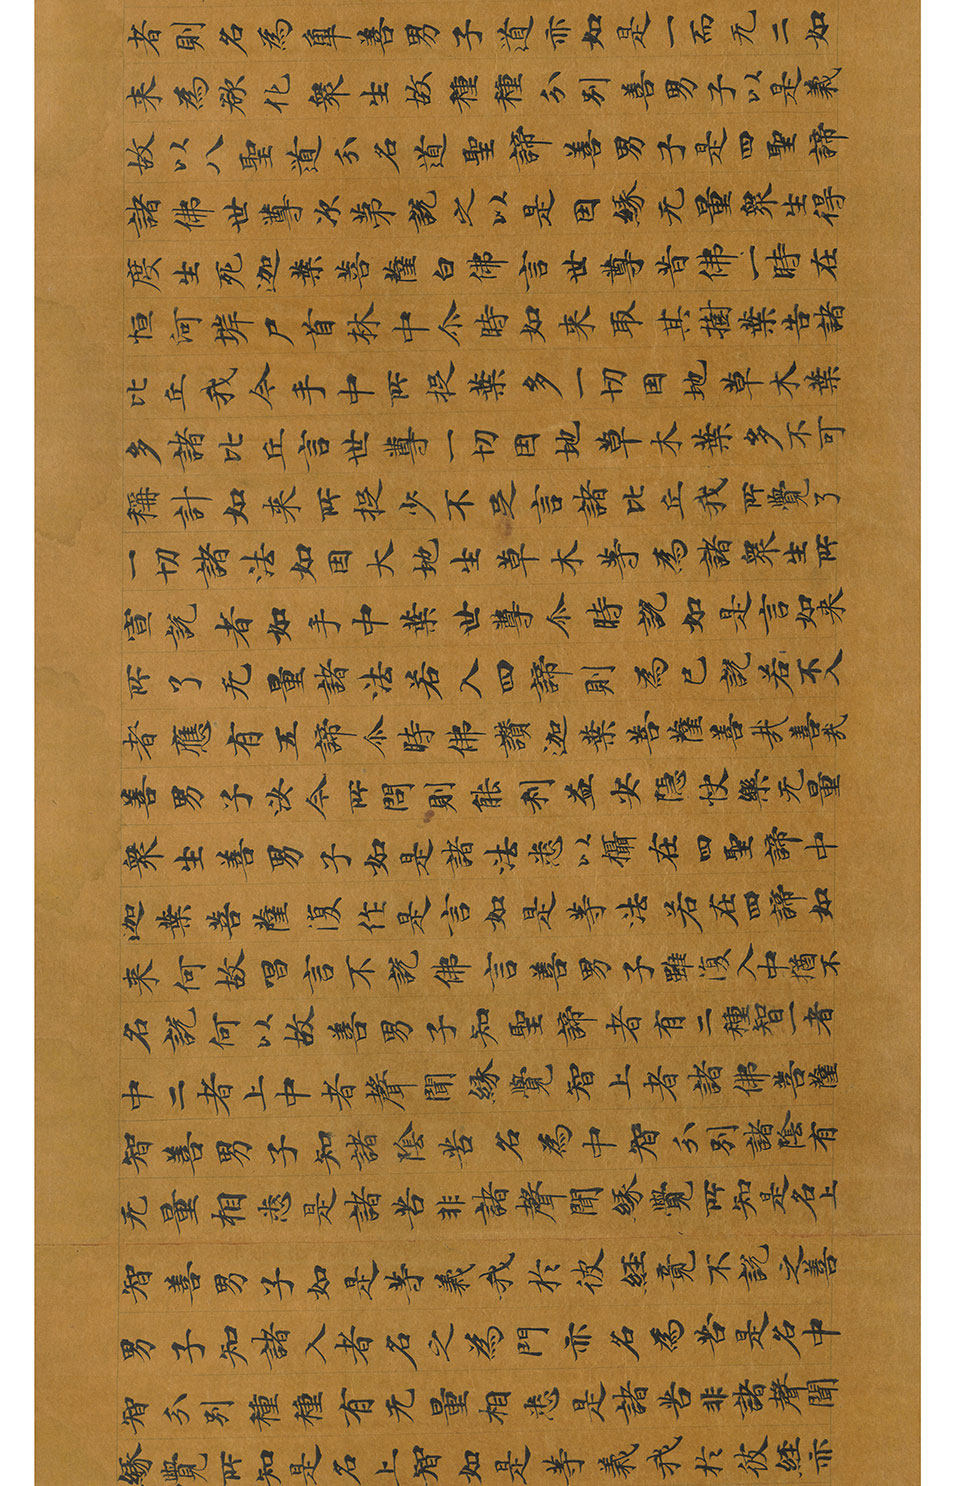 者則名為軍善男子道亦如是一而无二如
来為欲化衆生故種種分別善男子以是義
故以八聖道分名道聖諦善男子是四聖諦
諸佛世尊次第說之以是因緣无量衆生得
度生死迦葉菩薩白佛言世尊昔佛一時在
恒河岸尸首林中尒時如来取其樹葉告諸
比丘我今手中所捉葉多一切因地草木葉
多諸比丘言世尊一切因地草木葉多不可
稱計如来所捉少不足言諸比丘我所覺了
一切諸法如因大地生草木等為諸衆生所
宣說者如手中葉世尊尒時說如是言如来
所了无量諸法若入四諦則為已說若不入
者應有五諦尒時佛讚迦葉菩薩善哉善哉
善男子汝今所問則能利益安隱快樂无量
衆生善男子如是諸法悉以攝在四聖諦中
迦葉菩薩復作是言如是等法若在四諦如
来何故唱言不說佛言善男子雖復入中猶不
名說何以故善男子知聖諦者有二種智一者
中二者上中者聲聞緣覺智上者諸佛菩薩
智善男子知諸陰苦名為中智分別諸陰有
无量相悉是諸苦非諸聲聞緣覺所知是名上
智善男子如是等義我於彼經竟不說之善
男子知諸入者名之為門亦名為苦是名中
智分別種種有无量相悉是諸苦非諸聲聞
緣覺所知是名上智如是等義我於彼經亦